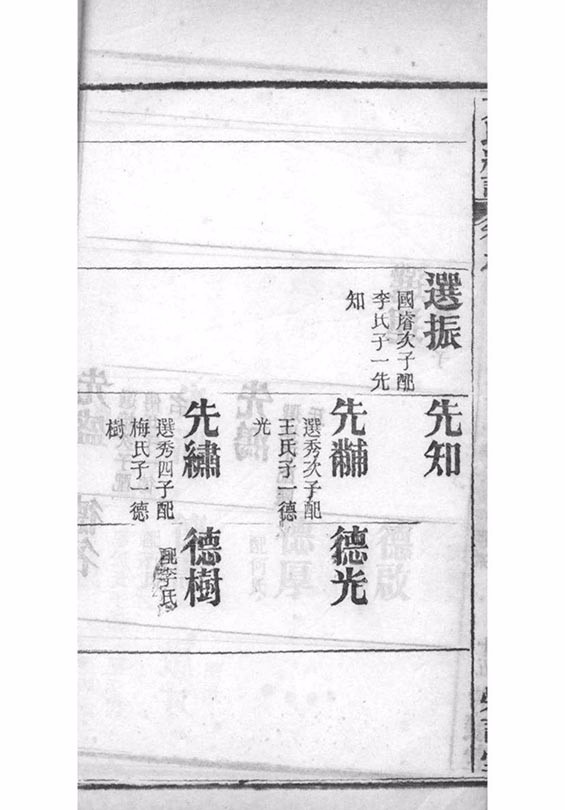 選振
國濬次子配
李氏子一先
知
先知
先黼
選秀次子配
王氏子一德
光
先繡
選秀四子配
梅氏子一德
樹
德光
德樹
配李氏